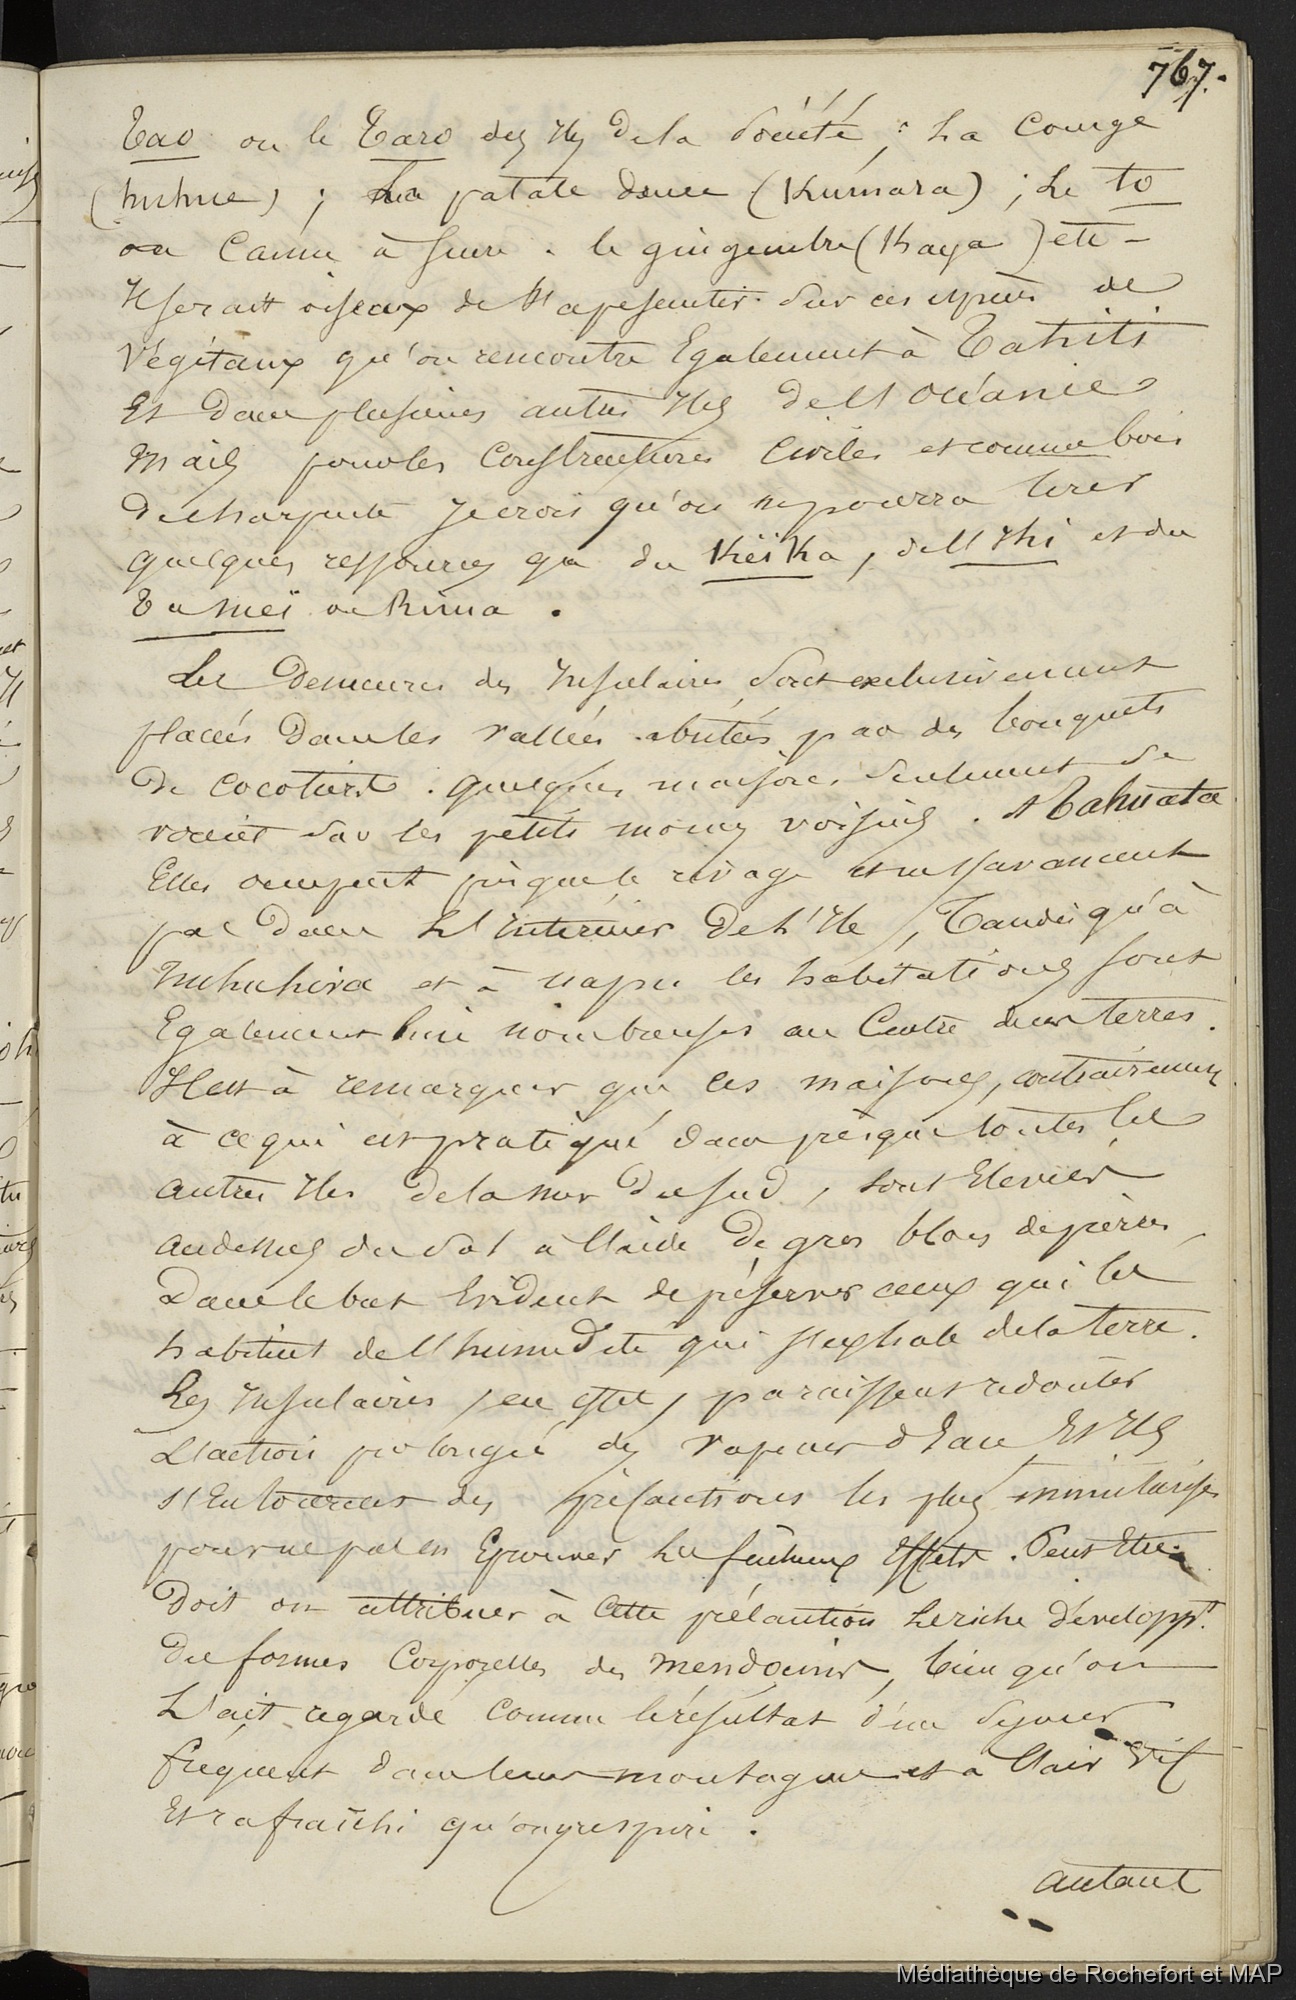 767.
Tao ou le Taro des Iles de la Société ; la Courge
(huhue) ; La patate douce (Kumara) ; Le to
ou Canne à sucre . le gingembre (Kaya) etc -
Il serait oiseux de s'apesentir sur ces espèces de
Végétaux qu'on rencontre Egalement à Tahiti
Et dans plusieurs autres Iles de l'Océanie
Mais pour les Constructions Civiles et comme bois
de charpente Je crois qu'on ne pourra tirer
quelques ressources que du Kéïka, de l'Ihi et du
Tumeï ou Rima .
Les Demeures des Insulaires sont exclusivement
placées dans les vallées abritées par des bouquets
de cocotiers . quelques maisons seulement se
voient sur les petits mornes voisins . A Tahuata
Elles occupent presque le rivage et ne s'avancent
pas dans l'Intérieur de l'Ile, Tandis qu'à
Nuhuhiva et à uapu les habitations sont
Egalement bien nombreuses au Centre des terres .
Il est à remarquer que ces maisons, contrairement
à ce qui est pratiqué dans presque toutes les
autres Iles de la mer du sud, sont Elevées
audessus du sol à l'aide de gros blocs de pierres,
Dans le but Evident de préserver ceux qui les
habitent de l'humidité qui s'exhale de la terre .
Les Insulaires, en effet, paraissent redouter
L'action prolongée des vapeurs d'Eau Et Ils
s'Entourent des précautions les plus minutieuses
pour ne pas en Eprouver les fâcheux Effets . Peut Etre
Doit on attribuer à cette précaution le riche développt.
des formes Corporelles des mendocins, bien qu'on
L'ait regardé comme le résultat d'un séjour
fréquent dans leurs montagnes et à l'air vif
Et rafraîchi qu'on y respire .
autant
Médiathèque de Rochefort et MAP